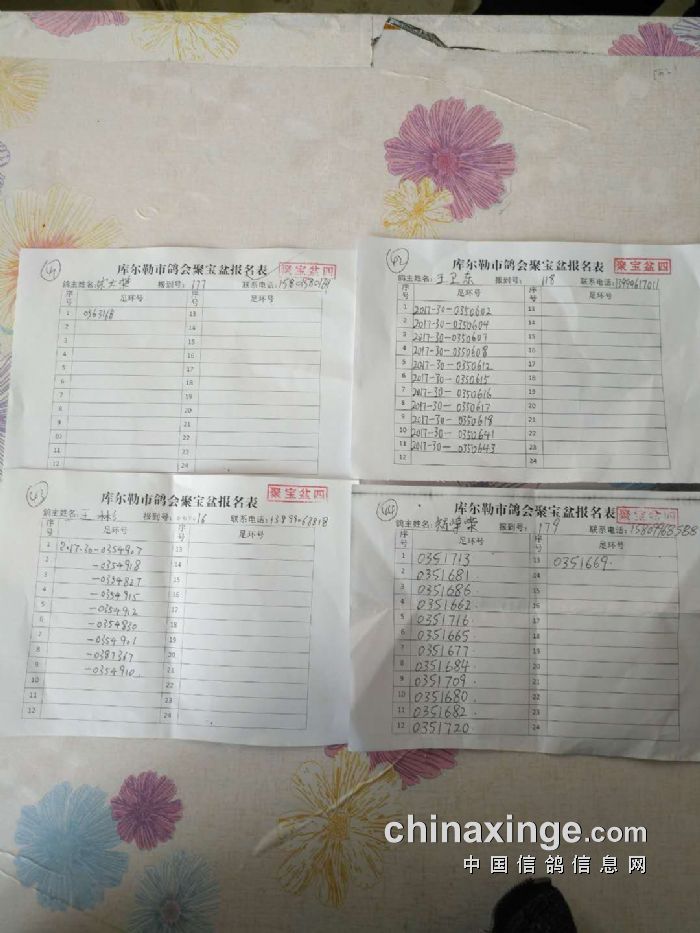 41
库尔勒市鸽会聚宝盆报名表
聚宝盆四
鸽主姓名: 报到号: 177 联系电话:
序号 足环号 序号 足环号
1 13
2 14
3 15
4 16
5 17
6 18
7 19
8 20
9 21
10 22
11 23
12 24
42
库尔勒市鸽会聚宝盆报名表
聚宝盆四
鸽主姓名: 王卫东 报到号: 118 联系电话: 13990617011
序号 足环号 序号 足环号
1 2017-30-0350602 13
2 2017-30-0350604 14
3 2017-30-0350607 15
4 2017-30-0350608 16
5 2017-30-0350612 17
6 2017-30-0350615 18
7 2017-30-0350616 19
8 2017-30-0350617 20
9 2017-30-0350618 21
10 2017-30-0350641 22
11 2017-30-0350643 23
12 24
43
库尔勒市鸽会聚宝盆报名表
聚宝盆四
鸽主姓名: 王 报到号: 16 联系电话:
序号 足环号 序号 足环号
1 2017-30-0354907 13
2 -0354918 14
3 -0354827 15
4 -0354915 16
5 -0354912 17
6 -0354830 18
7 -0354901 19
8 -0387367 20
9 -0354910 21
10 22
11 23
12 24
库尔勒市鸽会聚宝盆报名表
聚宝盆四
鸽主姓名: 报到号: 179 联系电话:
序号 足环号 序号 足环号
1 0351713 13 0351669
2 0351681 14
3 0351686 15
4 0351662 16
5 0351716 17
6 0351665 18
7 0351677 19
8 0351684 20
9 0351709 21
10 0351680 22
11 0351682 23
12 0351720 24
chinaxinge.com
中国信鸽信息网